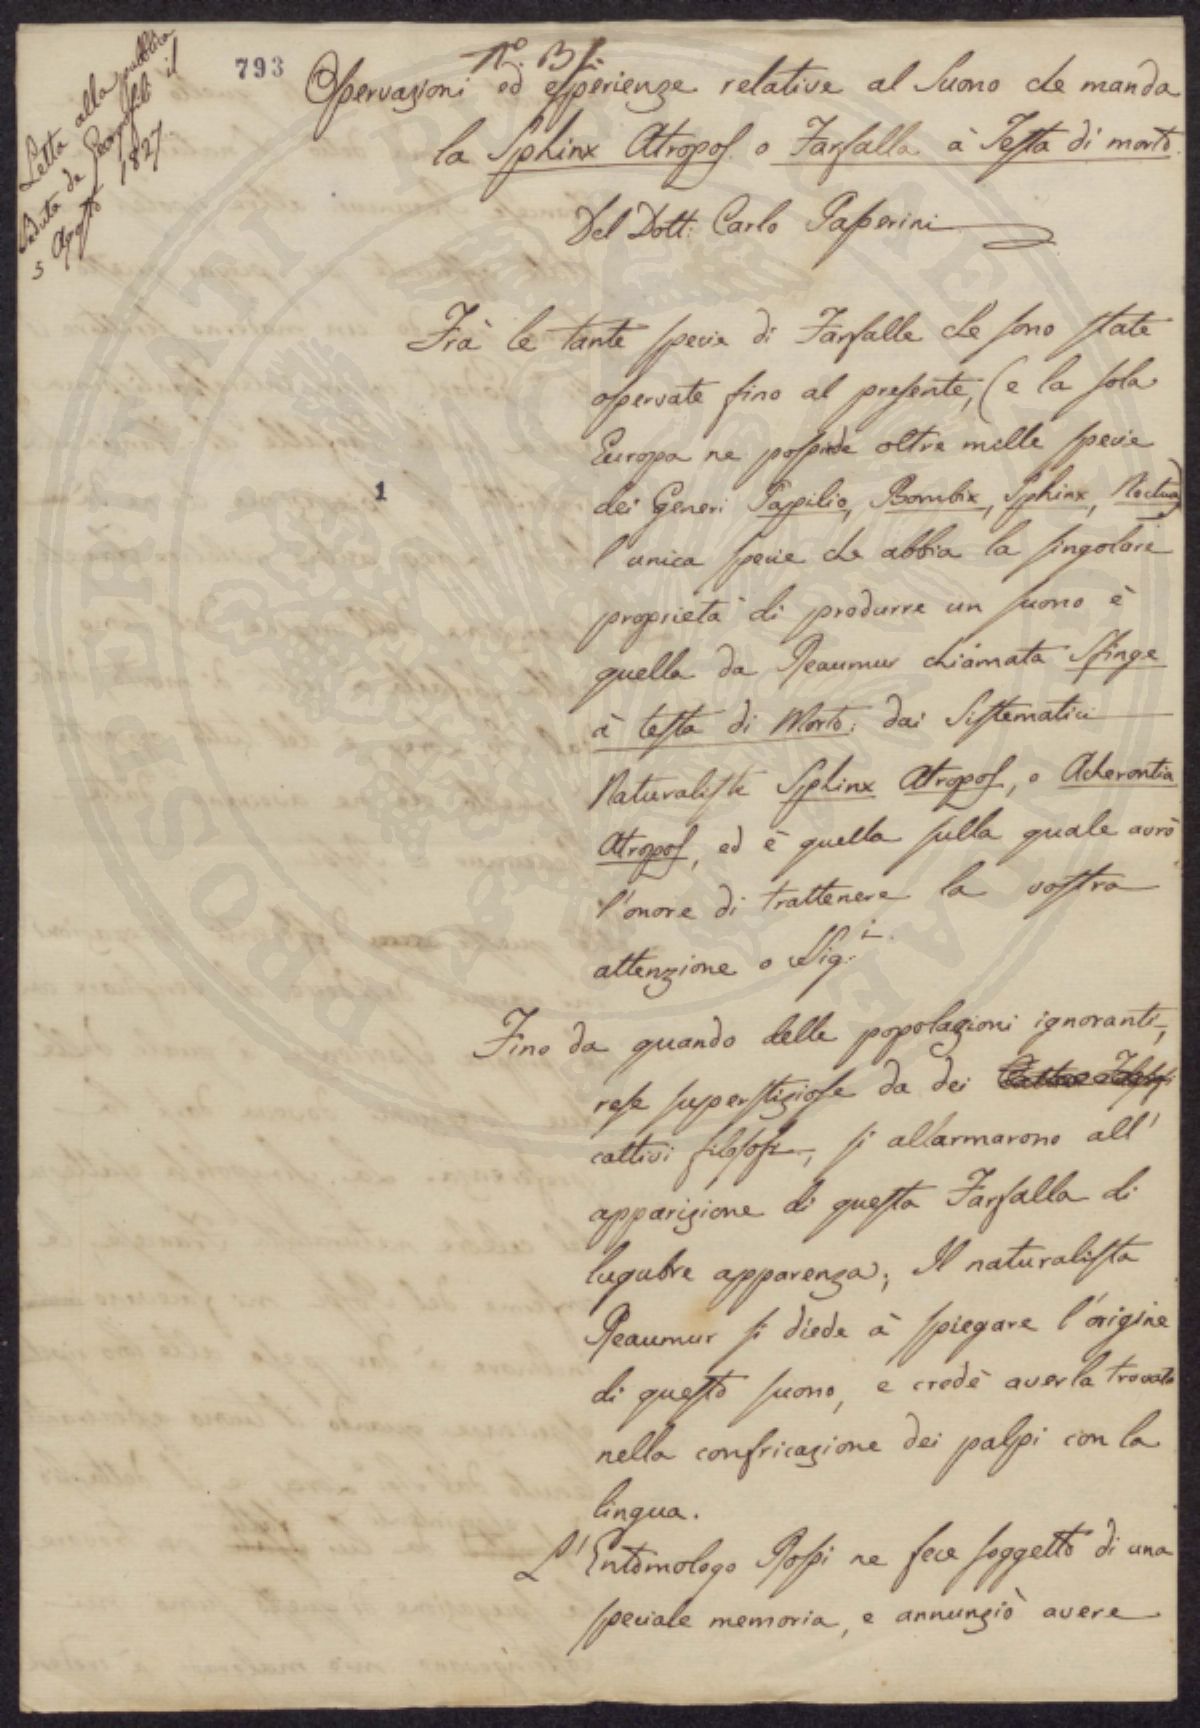 Letta alla pubblica
seduta de Georgofili il
5 Agosto 1827
793
N.º 31.
Osservazioni ed esperienze relative al Suono che manda
la Sphinx Atropos o Farfalla à Testa di morto.
Del Dott: Carlo Passerini
Frà le tante specie di Farfalle che sono state
osservate fino al presente, (e la sola
Europa ne possiede oltre mille specie
1
dei Generi Papilio, Bombix, Sphinx, Noctua)
l'unica specie che abbia la singolare
proprietà di produrre un suono è
quella da Reaumur chiamata Sfinge
à testa di Morto: dai Sistematici
Naturalisti Sphinx Atropos, o Acherontia
Atropos, ed è quella sulla quale avrò
l'onore di trattenere la vostra
attenzione o Sig.i
Fino da quando delle popolazioni ignoranti,
rese superstiziose da dei
cattivi filosofi, si allarmarono all'
apparizione di questa Farfalla di
lugubre apparenza; Il naturalista
Reaumur si diede à spiegare l'origine
di questo suono, e credè averla trovata
nella confricazione dei palpi con la
lingua.
L'Entomologo Rossi ne fece soggetto di una
speciale memoria, e annunziò avere
POSPERITATI PUBLICAE AUGENDAE